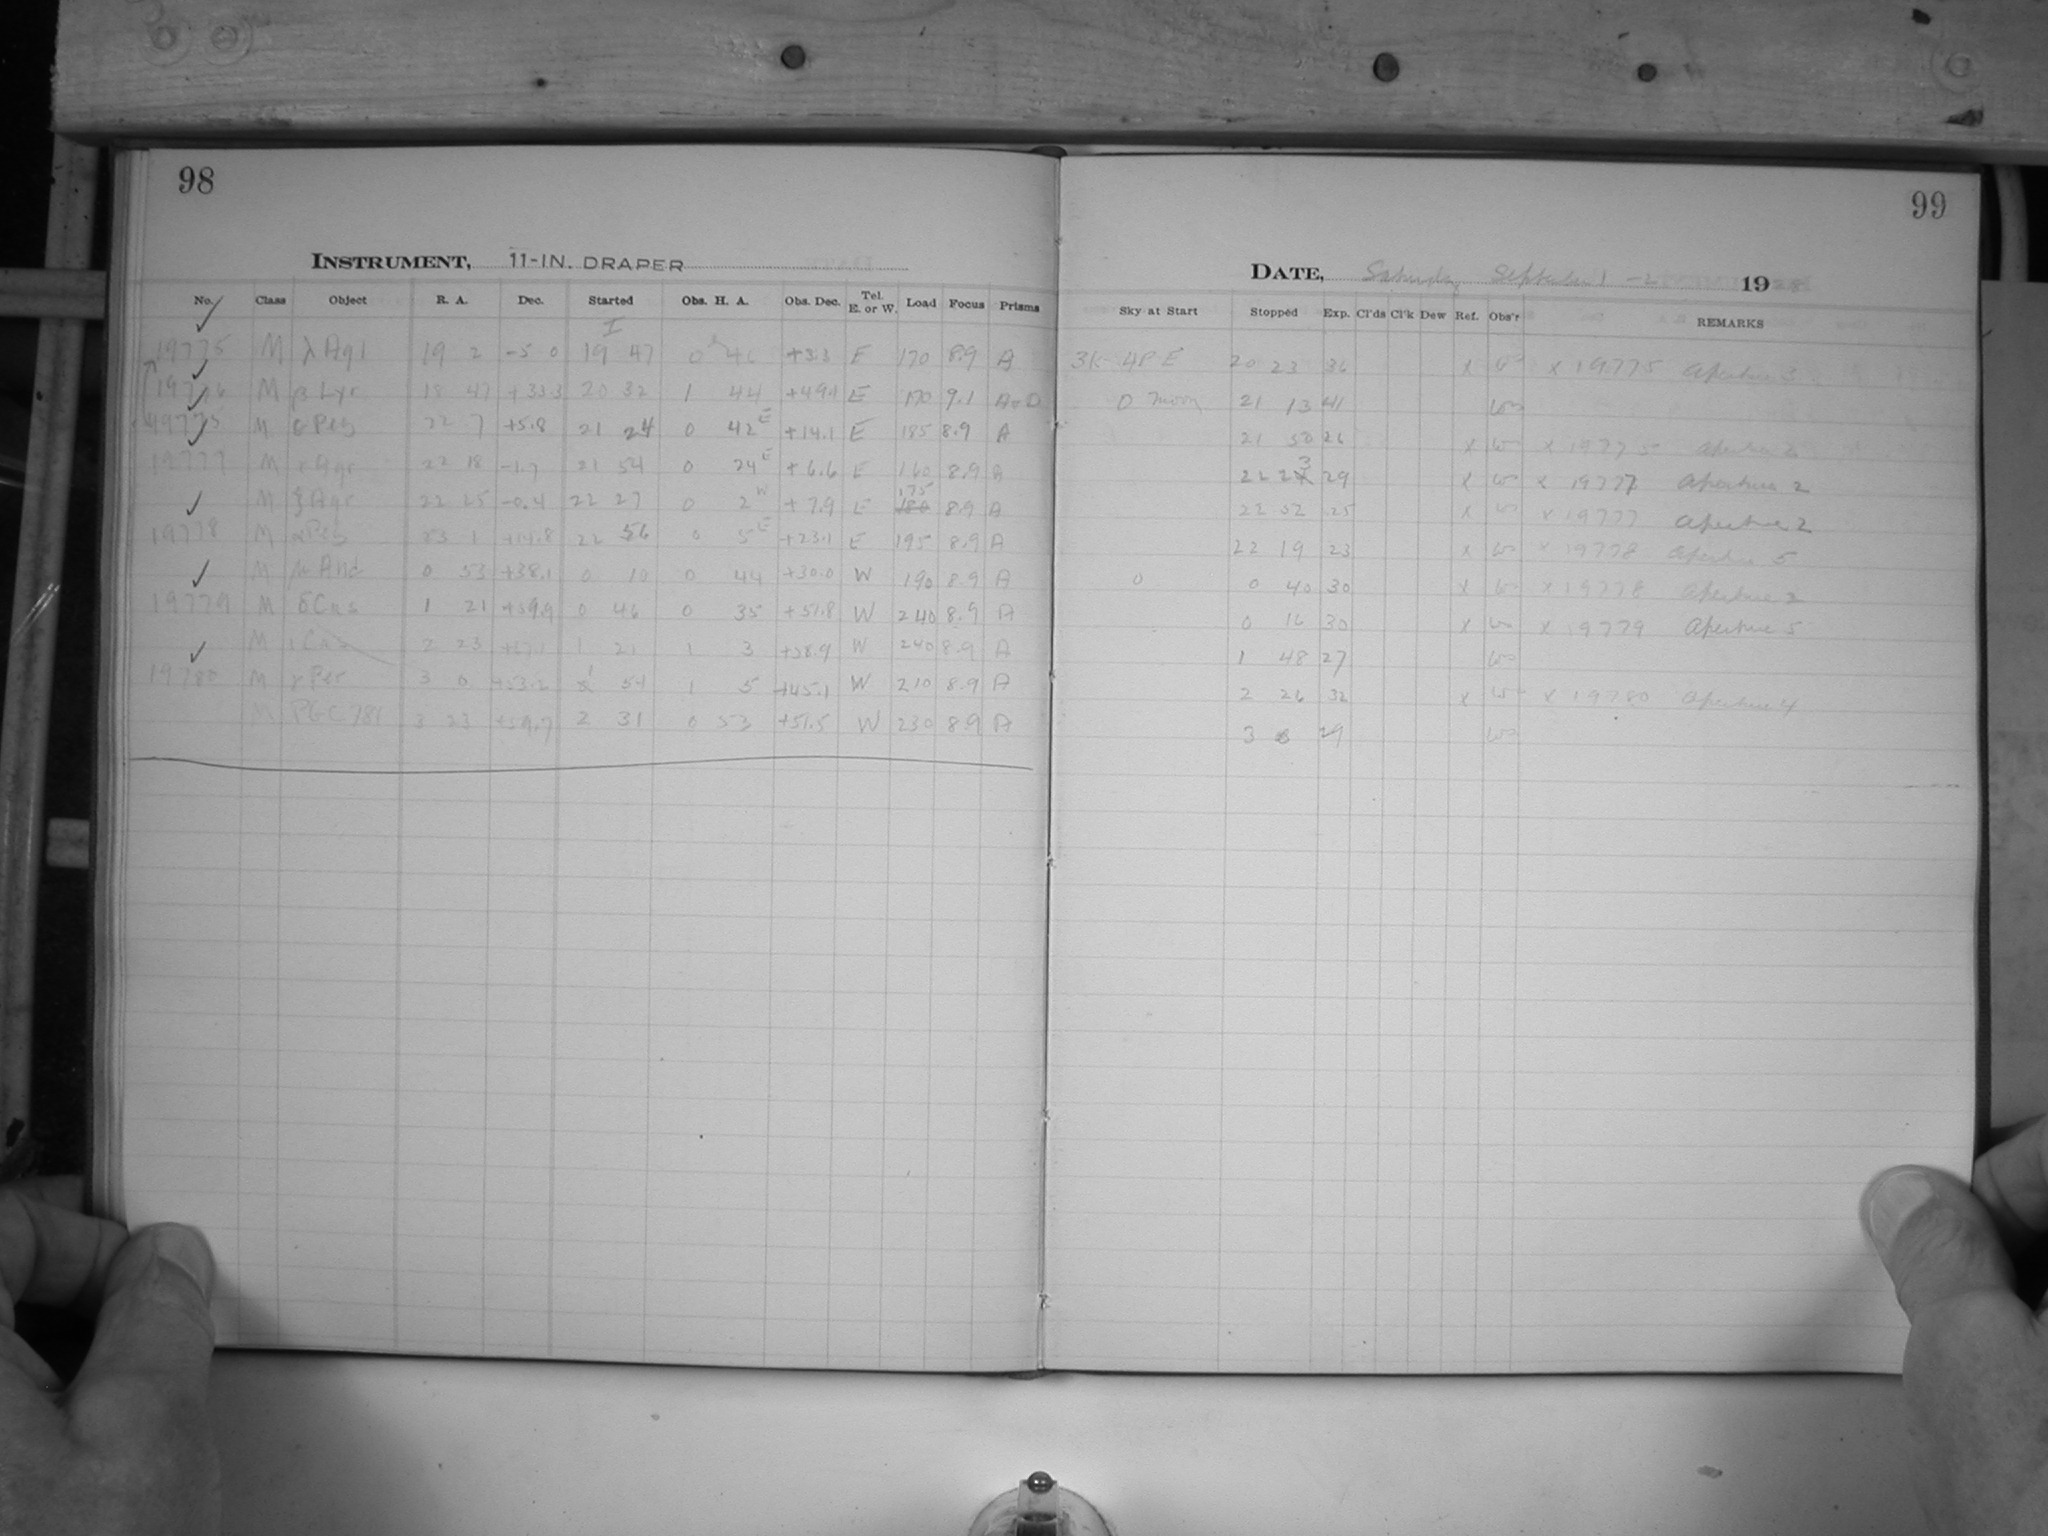 98
INSTRUMENT, 11-IN. DRAPER
No. Class Object R. A. Dec. Started Obs. H. A. Obs. Dec. Tel. E. or W. Load Focus Prisms
I
19775 M λ Aql 19 2 -5 0 19 47 0 46 +3.3 E 170 8.9 A
19776 M β Lyr 18 47 +33.3 20 32 1 44 +49.1 E 170 9.1
19775 M Peg 22 7 +5.8 21 24 0 42 E +14.1 E 185 8.9 A
19777 M γ Aqr 22 18 -1.7 21 54 0 24 E +6.6 E 160 8.9 A
M ξ Aqr 22 25 -0.4 22 27 0 2 W +7.9 E 175 8.9 A
19778 M α Peg 23 1 +14.8 22 56 0 5 E +23.1 E 195 8.9 A
M μ And 0 53 +38.1 0 10 0 44 +30.0 W 190 8.9 A
19779 M δ Cas 1 21 +59.9 0 46 0 35 +51.8 W 240 8.9 A
M ι Cas 2 23 1 21 1 3 +58.9 W 240 8.9 A
19780 M γ Per 3 0 +53.2 1 54 1 5 +45.1 W 210 8.9 A
M PGC 781 3 23 +59.7 2 31 0 53 +51.5 W 230 8.9 A
99
DATE, Saturday September 1-2 19 28
Sky at Start Stopped Exp. Cl'ds Cl'k Dew Ref. Obs'r REMARKS
3K 4P E 20 23 36 x x 19775 Aperture 3
0 moon 21 13 41
21 50 26 x x 19775 Aperture
22 23 29 x x 19777 Aperture 2
22 52 25 x x 19777 Aperture 2
22 19 23 x x 19778 Aperture 5
0 0 40 30 x x 19778 Aperture 2
0 16 30 x x 19779 Aperture 5
1 48 27
2 26 32 x x 19780 Aperture 4
3 29